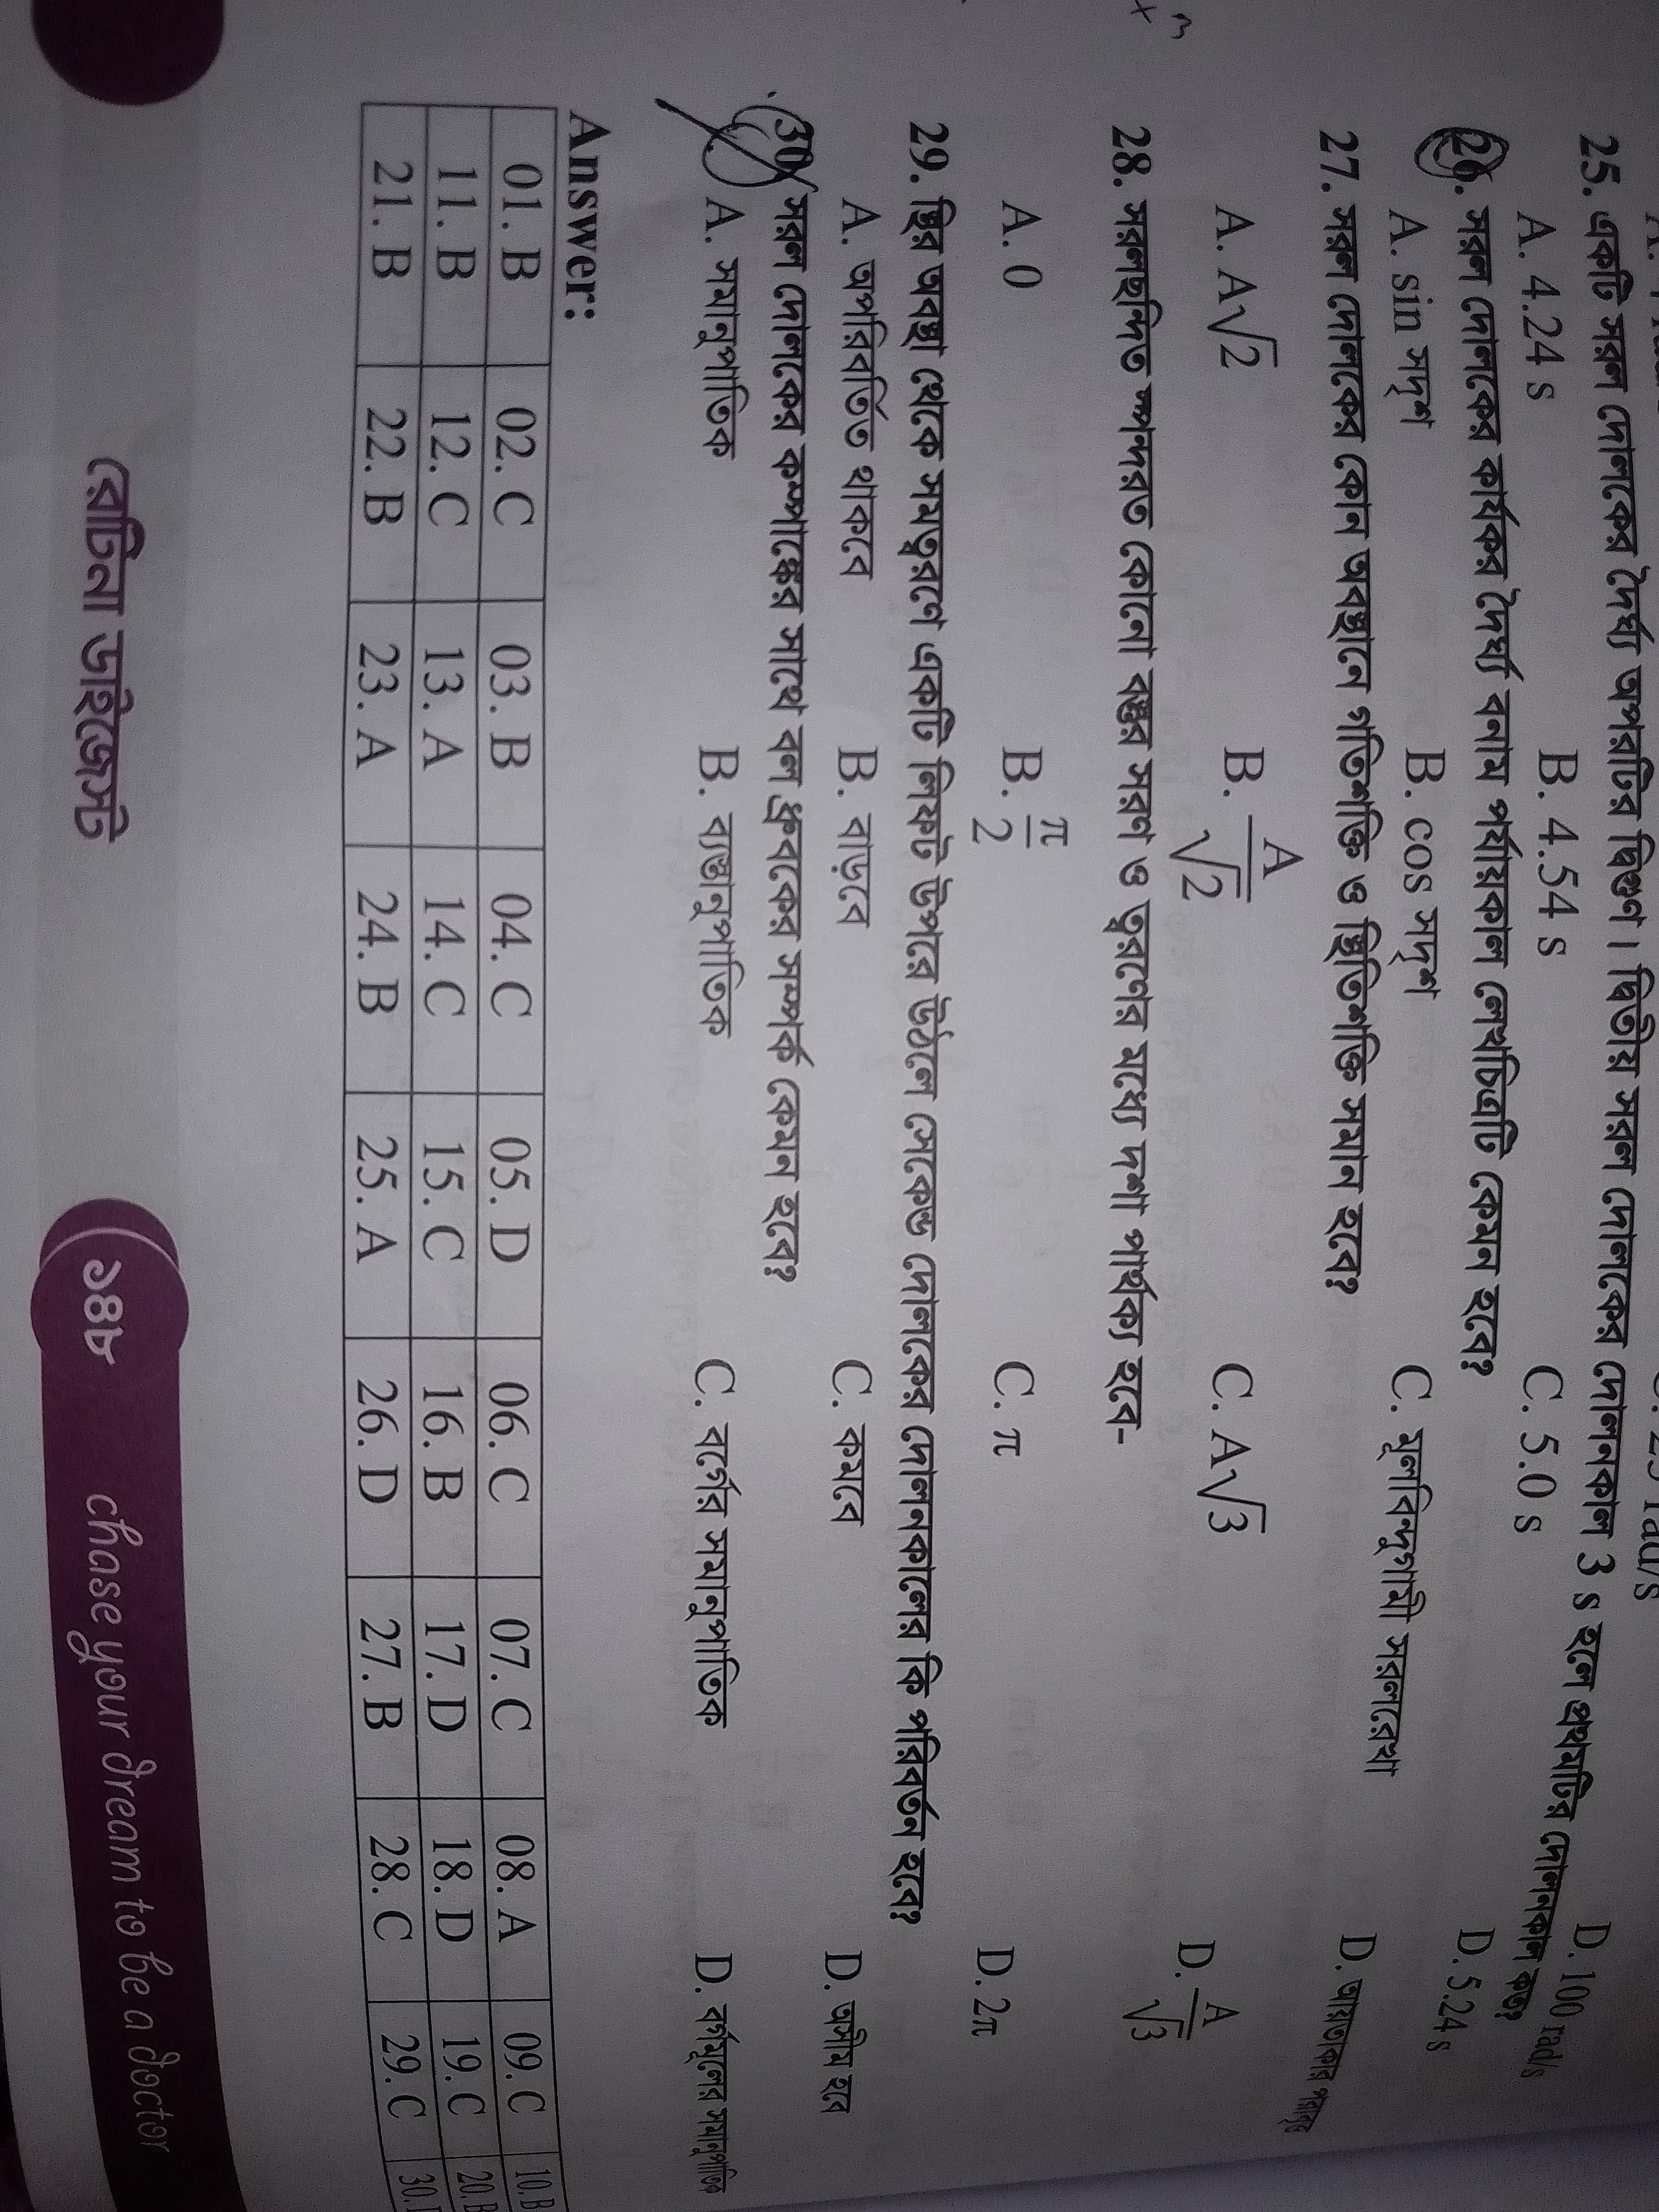 25. একটি সরল দোলকের দৈর্ঘ্য অপরটির দ্বিগুণ। দ্বিতীয় সরল দোলকের দোলনকাল 3 s হলে প্রথমটির দোলনকাল কত?
A. 4.24 s B. 4.54 s C. 5.0 s D. 5.24 s
26. সরল দোলকের কার্যকর দৈর্ঘ্য বনাম পর্যায়কাল লেখচিত্রটি কেমন হবে?
A. sin সদৃশ B. cos সদৃশ C. মূলবিন্দুগামী সরলরেখা D.
27. সরল দোলকের কোন অবস্থানে গতিশক্তি ও স্থিতিশক্তি সমান হবে?
A. A√2 B. A/√2 C. A√3 D. A/√3
28. সরলছন্দিত স্পন্দনরত কোনো বস্তুর সরণ ও ত্বরণের মধ্যে দশা পার্থক্য হবে-
A. 0 B. π/2 C. π D. 2π
29. স্থির অবস্থা থেকে সমত্বরণে একটি লিফট উপরে উঠলে সেকেন্ড দোলকের দোলনকালের কি পরিবর্তন হবে?
A. অপরিবর্তিত থাকবে B. বাড়বে C. কমবে D. অসীম হবে
30. সরল দোলকের কম্পাঙ্কের সাথে বল ধ্রুবকের সম্পর্ক কেমন হবে?
A. সমানুপাতিক B. ব্যস্তানুপাতিক C. বর্গের সমানুপাতিক D. বর্গমূলের সমানুপাতিক
Answer:
01. B 02. C 03. B 04. C 05. D 06. C 07. C 08. A 09. C 10. B
11. B 12. C 13. A 14. C 15. C 16. B 17. D 18. D 19. C 20. B
21. B 22. B 23. A 24. B 25. A 26. D 27. B 28. C 29. C 30.
রেটিনা ডাইজেস্ট ১৪৮ chase your dream to be a doctor